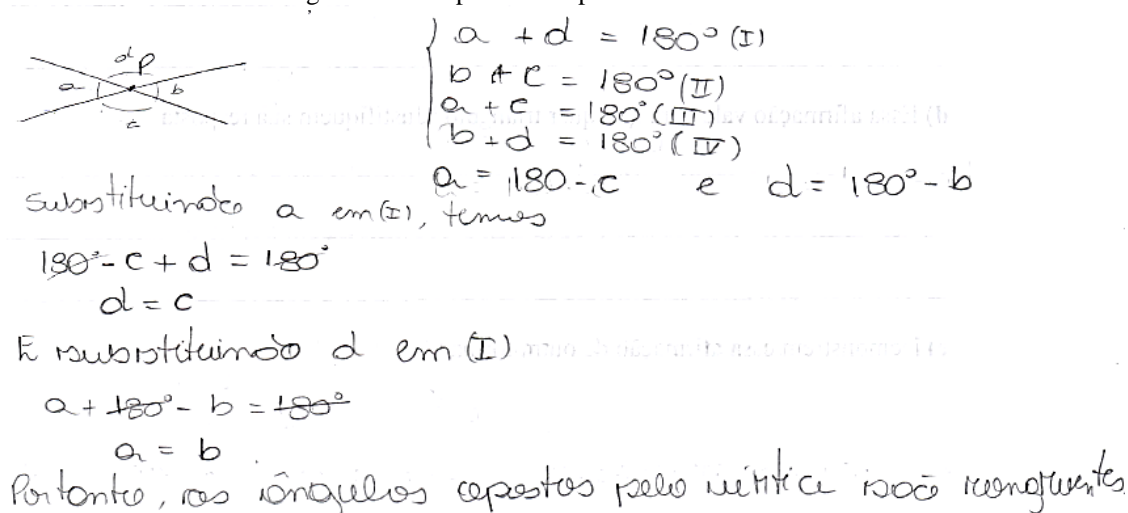 d P
a b
c
a + d = 180° (I)
b + c = 180° (II)
a + c = 180° (III)
b + d = 180° (IV)
a = 180 - c e d = 180° - b
Substituindo a em (I), temos
180° - c + d = 180°
d = c
E substituindo d em (I)
a + 180° - b = 180°
a = b
Portanto, os ângulos opostos pelo vértice são congruentes.